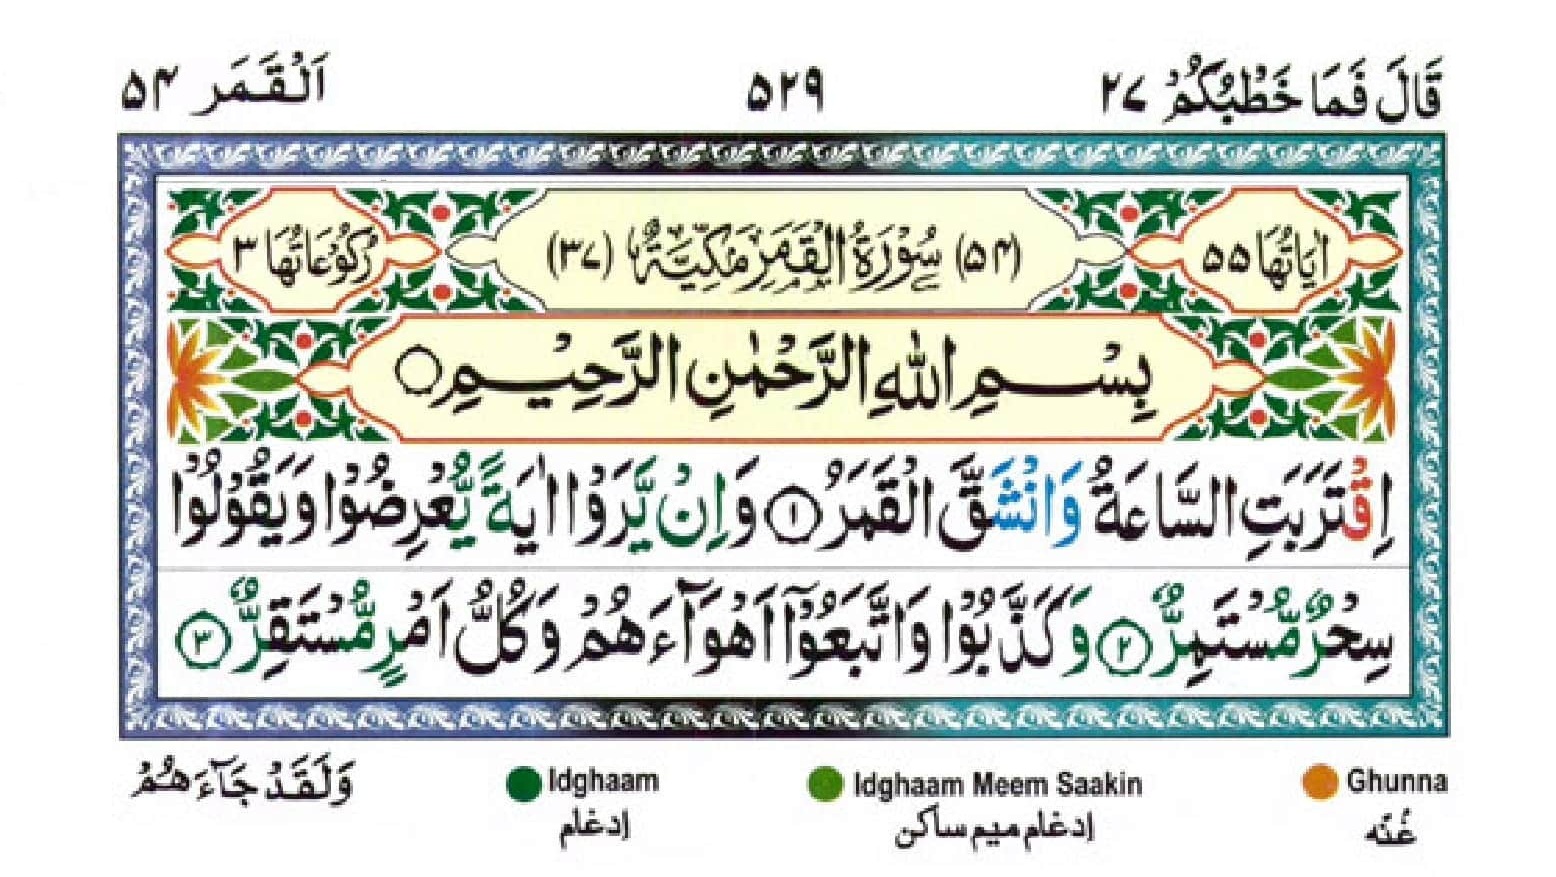 قَالَ فَمَا خَطْبُكُمْ ٢٧ ٥٢٩ اَلْقَمَر ٥٤
اٰيَاتُهَا ٥٥ (٥٤) سُوْرَةُ الْقَمَرِ مَكِّيَّةٌ (٣٧) رُكُوْعَاتُهَا ٣
بِسْمِ اللهِ الرَّحْمٰنِ الرَّحِيْمِ ○
اِقْتَرَبَتِ السَّاعَةُ وَانْشَقَّ الْقَمَرُ ١ وَاِنْ يَّرَوْا اٰيَةً يُّعْرِضُوْا وَيَقُوْلُوْا
سِحْرٌ مُّسْتَمِرٌّ ٢ وَكَذَّبُوْا وَاتَّبَعُوْٓا اَهْوَآءَهُمْ وَكُلُّ اَمْرٍ مُّسْتَقِرٌّ ٣
وَلَقَدْ جَآءَهُمْ
Idghaam Idghaam Meem Saakin Ghunna
إدغام إدغام ميم ساكن غُنّه